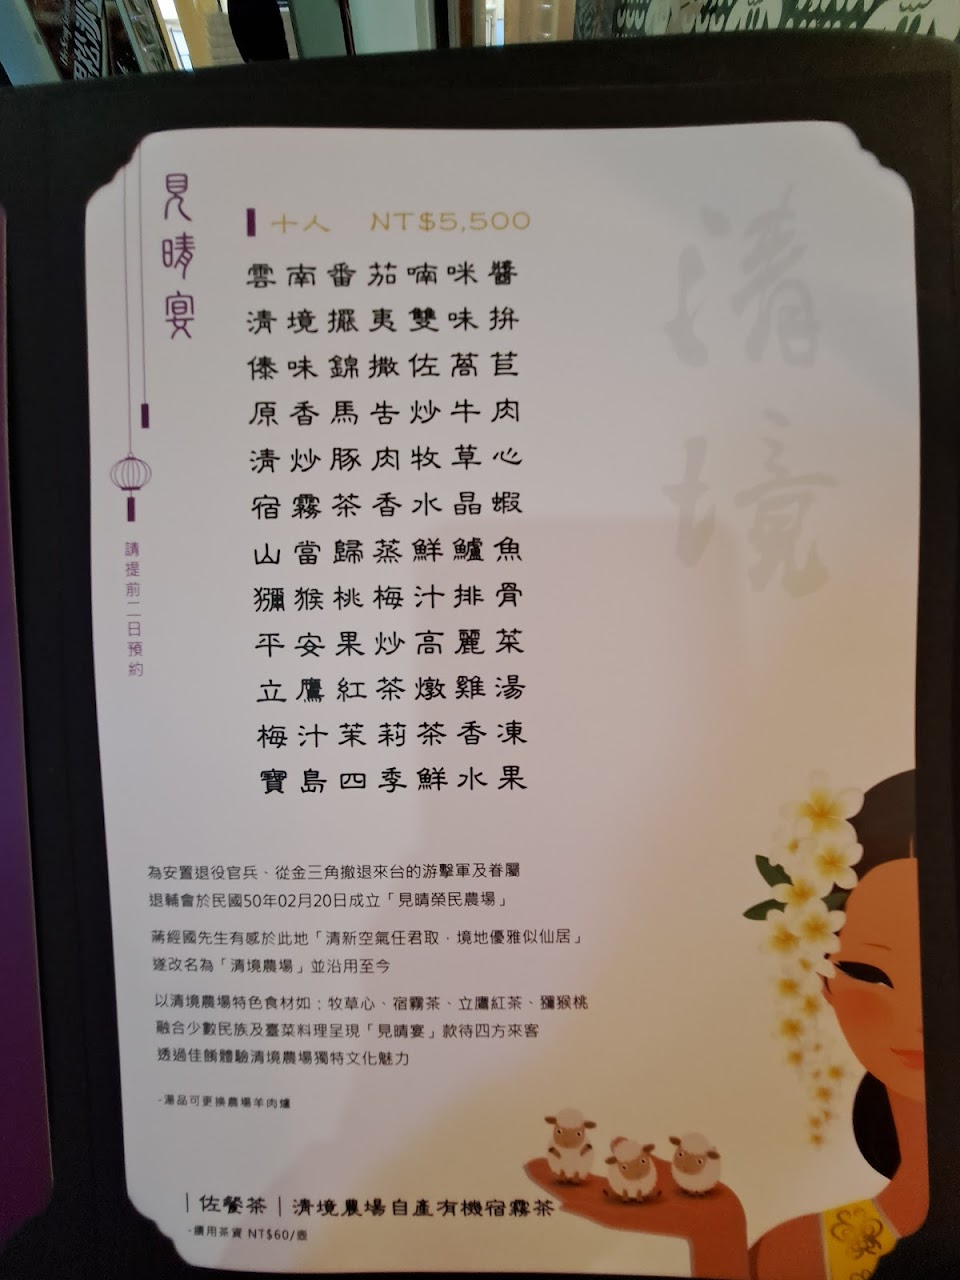 見晴宴
十人 NT$5,500
雲南番茄喃咪醬
清境擺夷雙味拚
傣味錦撒佐萵苣
原香馬告炒牛肉
清炒豚肉牧草心
宿霧茶香水晶蝦
山當歸蒸鮮鱸魚
獼猴桃梅汁排骨
平安果炒高麗菜
立鷹紅茶燉雞湯
梅汁茉莉茶香凍
寶島四季鮮水果
請提前二日預約
清境
為安置退役官兵、從金三角撤退來台的游擊軍及眷屬
退輔會於民國50年02月20日成立「見晴榮民農場」
蔣經國先生有感於此地「清新空氣任君取，境地優雅似仙居」
遂改名為「清境農場」並沿用至今
以清境農場特色食材如：牧草心、宿霧茶、立鷹紅茶、獼猴桃
融合少數民族及臺菜料理呈現「見晴宴」款待四方來客
透過佳餚體驗清境農場獨特文化魅力
-湯品可更換農場羊肉爐
｜佐餐茶｜清境農場自產有機宿霧茶
-續用茶資 NT$60/壺